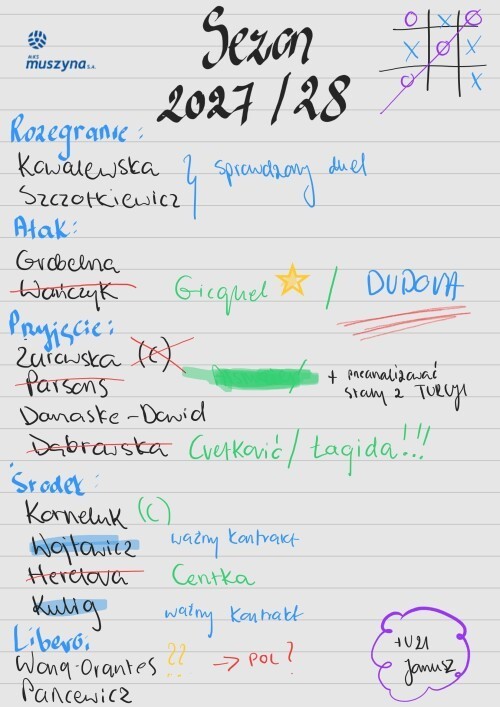 MKS
muszyna S.A.
Sezon
2027/28
O X O
X O X
O X
Rozegranie:
Kowalewska } sprawdzony duet
Szczotkiewicz
Atak:
Grobelna
Wańczyk Gicquel / DUDOVA
Przyjęcie:
Żurowska (C)
Parsons + przeanalizować
stany z TURCJI
Damaske-Dawid
Dąbrowska Cvetković / Łagida!!!
Środek:
Korneluk (C)
Wojtowicz ważny kontrakt
Herelova Centka
Kulig ważny kontrakt
Libero:
Wong-Orantes ?? → POL?
Pancewicz
+U21
Janusz